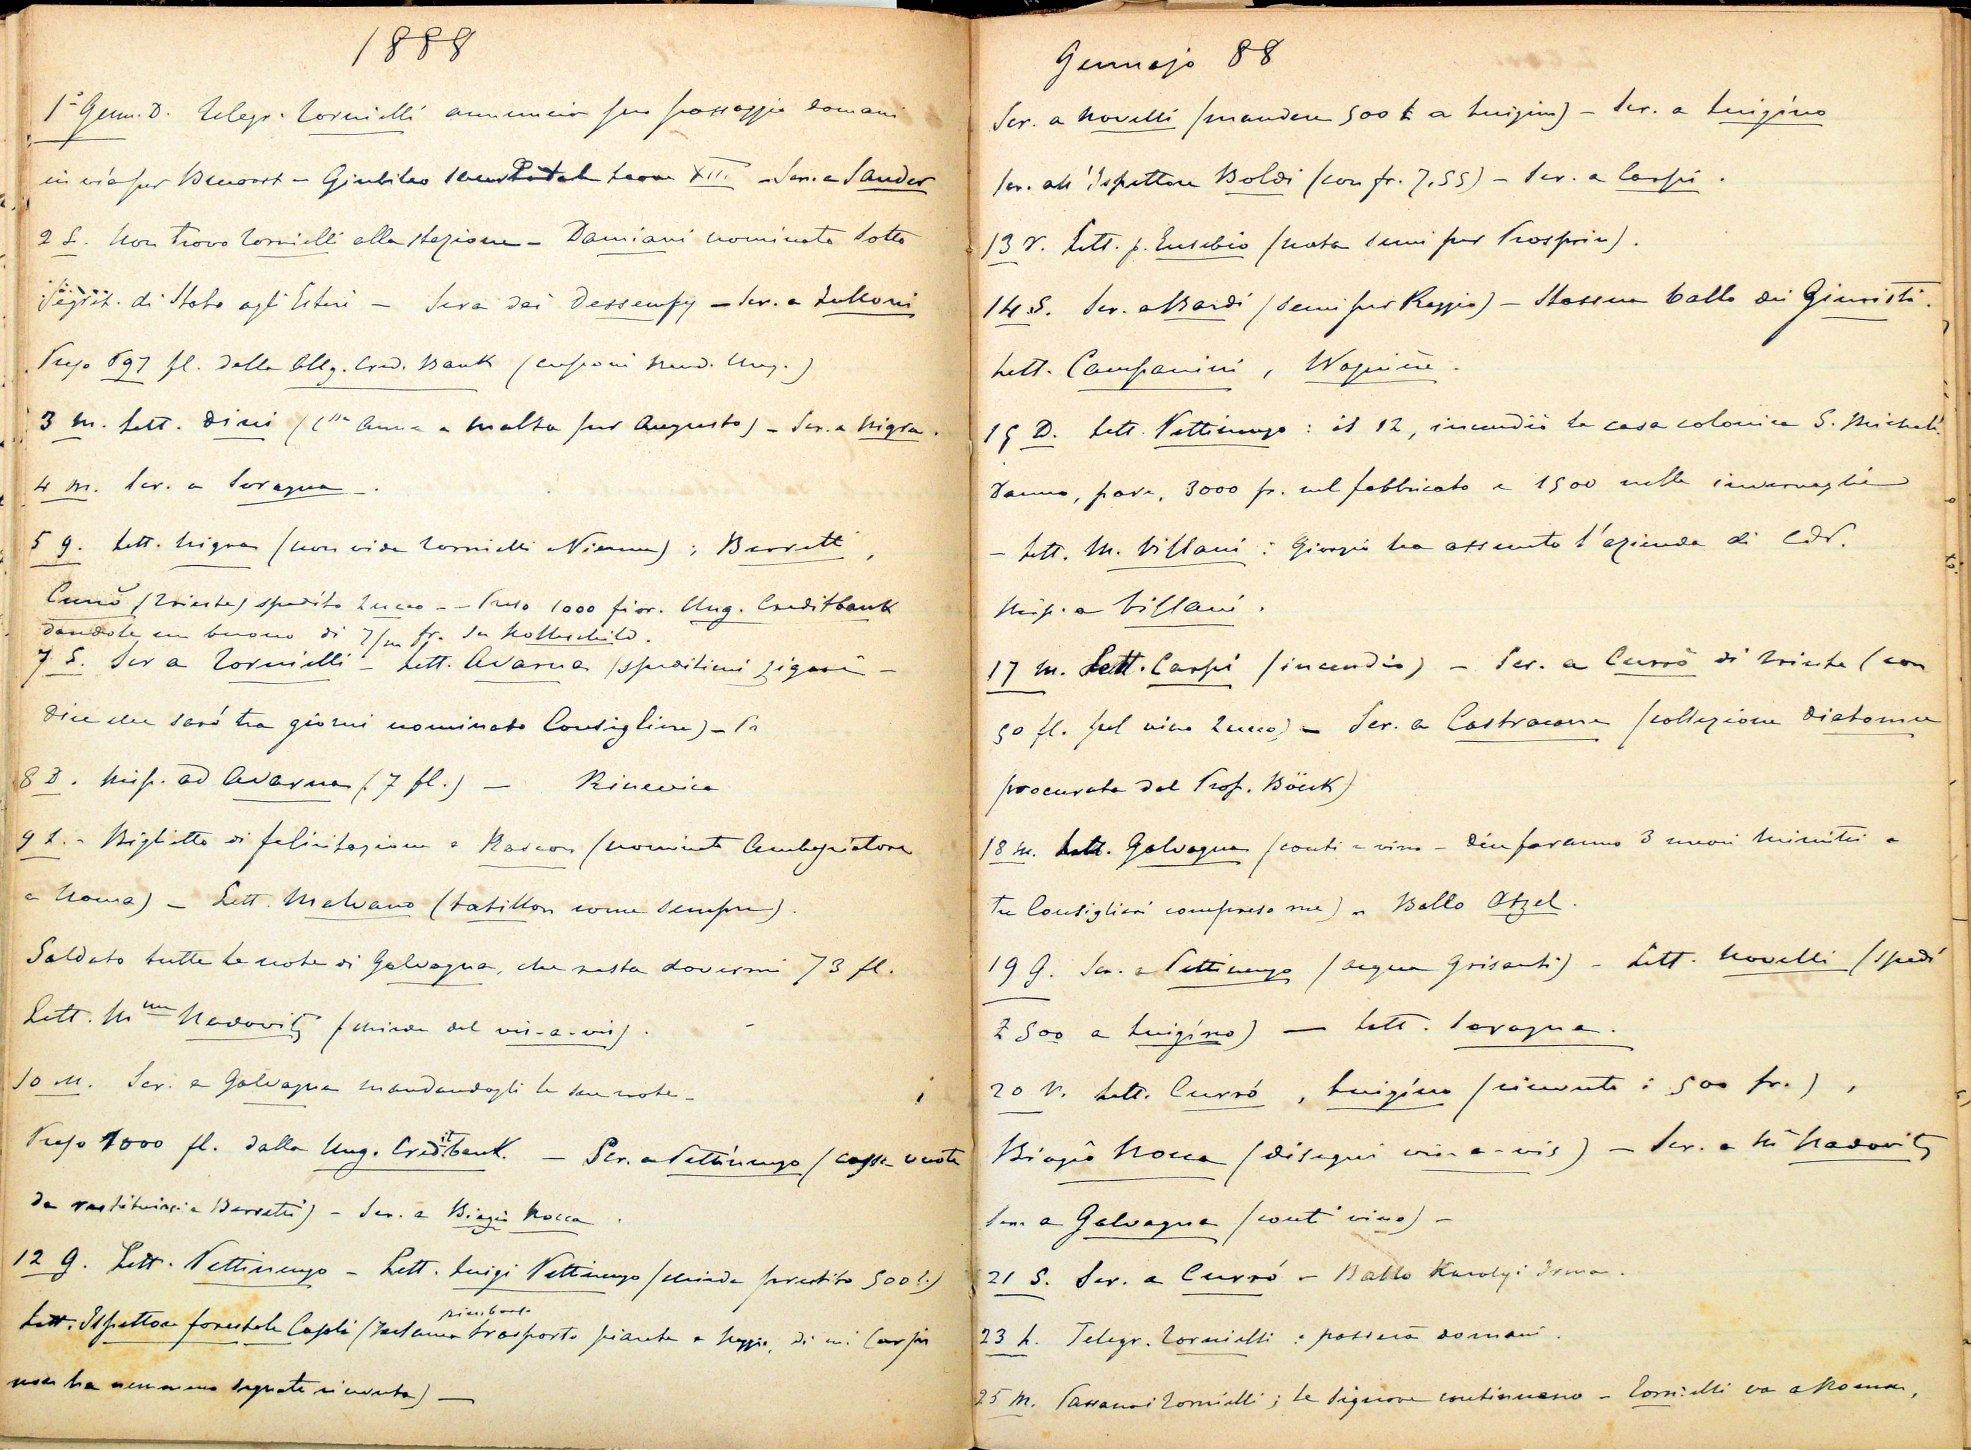 1888
1° Genn. D. Telegr. Tornielli annuncia suo passaggio domani
in via per Bucarest - Giubileo sacerdotale Leone XIII - Scr. a Sander
2 L. Non trovo Tornielli alla stazione - Damiani nominato Sotto
Segret. di Stato agli Esteri - Sera dai Dessewffy - Scr. a Zulkoni
Preso 697 fl. dalla Allg. Cred. Bank (cuponi Rend. Ung.)
3 M. Lett. Dini (C.lla Anna a Malta per Augusto) - Scr. a Nigra.
4 M. Scr. a Soragna -.
5 G. Lett. Nigra (non vide Tornielli a Vienna); Berretti,
Currò (Trieste) spedito Zucco - - Preso 1000 fior. Ung. Creditbank
dandole un buono di 7/m fr. su Rothschild.
7 S. Scr a Tornielli - Lett. Avarna (speditimi zigari -
dice che sarò tra giorni nominato Consigliere) - Pr
8 D. Risp. ad Avarna (7 fl.) -
9 L. - Biglietto di felicitazione a Rascon (nominato Ambasciatore
a Roma) - Lett. Malvano (tatillon come sempre).
Saldato tutte le note di Galvagna, che resta dovermi 73 fl.
Lett. M.me Nadovitz (chiede del vis-a-vis).
10 M. Scr. a Galvagna mandandogli le sue note -
Preso 1000 fl. dalla Ung. Creditbank. - Scr. a Pettinengo (casse vuote
da restituirsi a Berretti) - Scr. a Biagio Rocca.
12 G. Lett. Pettinengo - Lett. Luigi Pettinengo (chiede prestito 500 l.)
Lett. Ispettore forestale (reclama rimborso trasporto piante a Reggio, di cui Carpi
non ha nemmeno segnato ricevuta) -
Gennajo 88
Scr. a Novelli (mandare 500 £ a Luigino) - Scr. a Luigino
Scr. all'Ispettore Boldi (con fr. 7,55) - Scr. a Carpi.
13 V. Lett. p. Eusebio (nota semi per Prosperin).
14 S. Scr. a Bardi (semi per Reggio) - Stassera ballo dei Giuristi.
Lett. Campanini, Wagnière.
15 D. Lett. Pettinengo: il 12, incendiò la casa colonica S. Michele.
Danno, pare, 3000 fr. nel fabbricato e 1500 nelle invernaglie
- Lett. M. Villani: Giorgio ha assunto l'azienda di CdV.
Risp. a Villani.
17 M. Lett. Carpi (incendio) - Scr. a Currò di Trieste (con
50 fl. pel vino Zucco) - Scr. a Castracane (collezione Diatomee
procurata dal Prof. Böck)
18 M. Lett. Galvagna (conti e vino - dice faranno 3 nuovi Ministri e
tre Consiglieri compreso me) - Ballo Atzel.
19 G. Scr. a Pettinengo (acqua Grisanti) - Lett. Novelli (spedì
£ 500 a Luigino) - Lett. Soragna.
20 V. Lett. Currò, Luigino (ricevute i 500 fr.),
Biagio Rocca (disegni vis-a-vis) - Scr. a M.e Nadovitz
Scr. a Galvagna (conti vino) -
21 S. Scr. a Currò - Ballo Karolyi Irma.
23 L. Telegr. Tornielli: passerà domani.
25 M. Passano i Tornielli; le Signore continuano - Tornielli va a Roma,